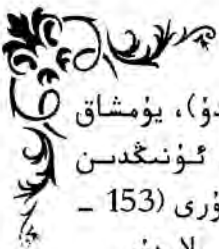 دۇ)، يۇمشاق
ئۇنىڭدىن
ۇرى (153 ـ